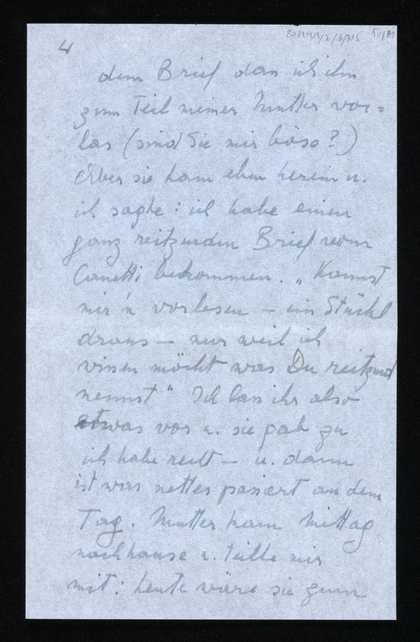 4
dem Brief dass ich ihn
zum Teil meiner Mutter vor=
las (sind Sie mir böse?)
Aber sie kam eben herein u.
ich sagte: ich habe einen
ganz reitzenden Brief vom
Canetti bekommen. „Kannst
mir 'n vorlesen – ein Stückl
draus – nur weil ich
wissen möcht was Du reitzend
nennst" Ich las ihr also
etwas vor u. sie gab zu
ich habe recht – u. dann
ist was nettes passiert an dem
Tag. Mutter kam Mittag
nachhause u. teilte mir
mit: heute wäre sie zum